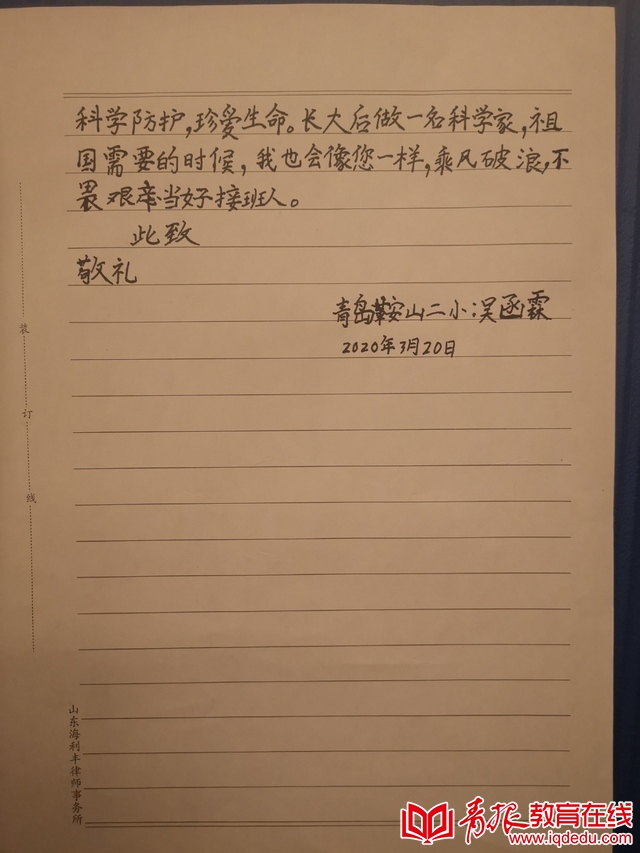 科学防护,珍爱生命。长大后做一名科学家,祖
国需要的时候,我也会像您一样,乘风破浪,不
畏艰辛当好接班人。
此致
敬礼
青岛鞍山二小:吴函霖
2020年3月20日
装
订
线
山东海利丰律师事务所
青报教育在线
www.iqdedu.com